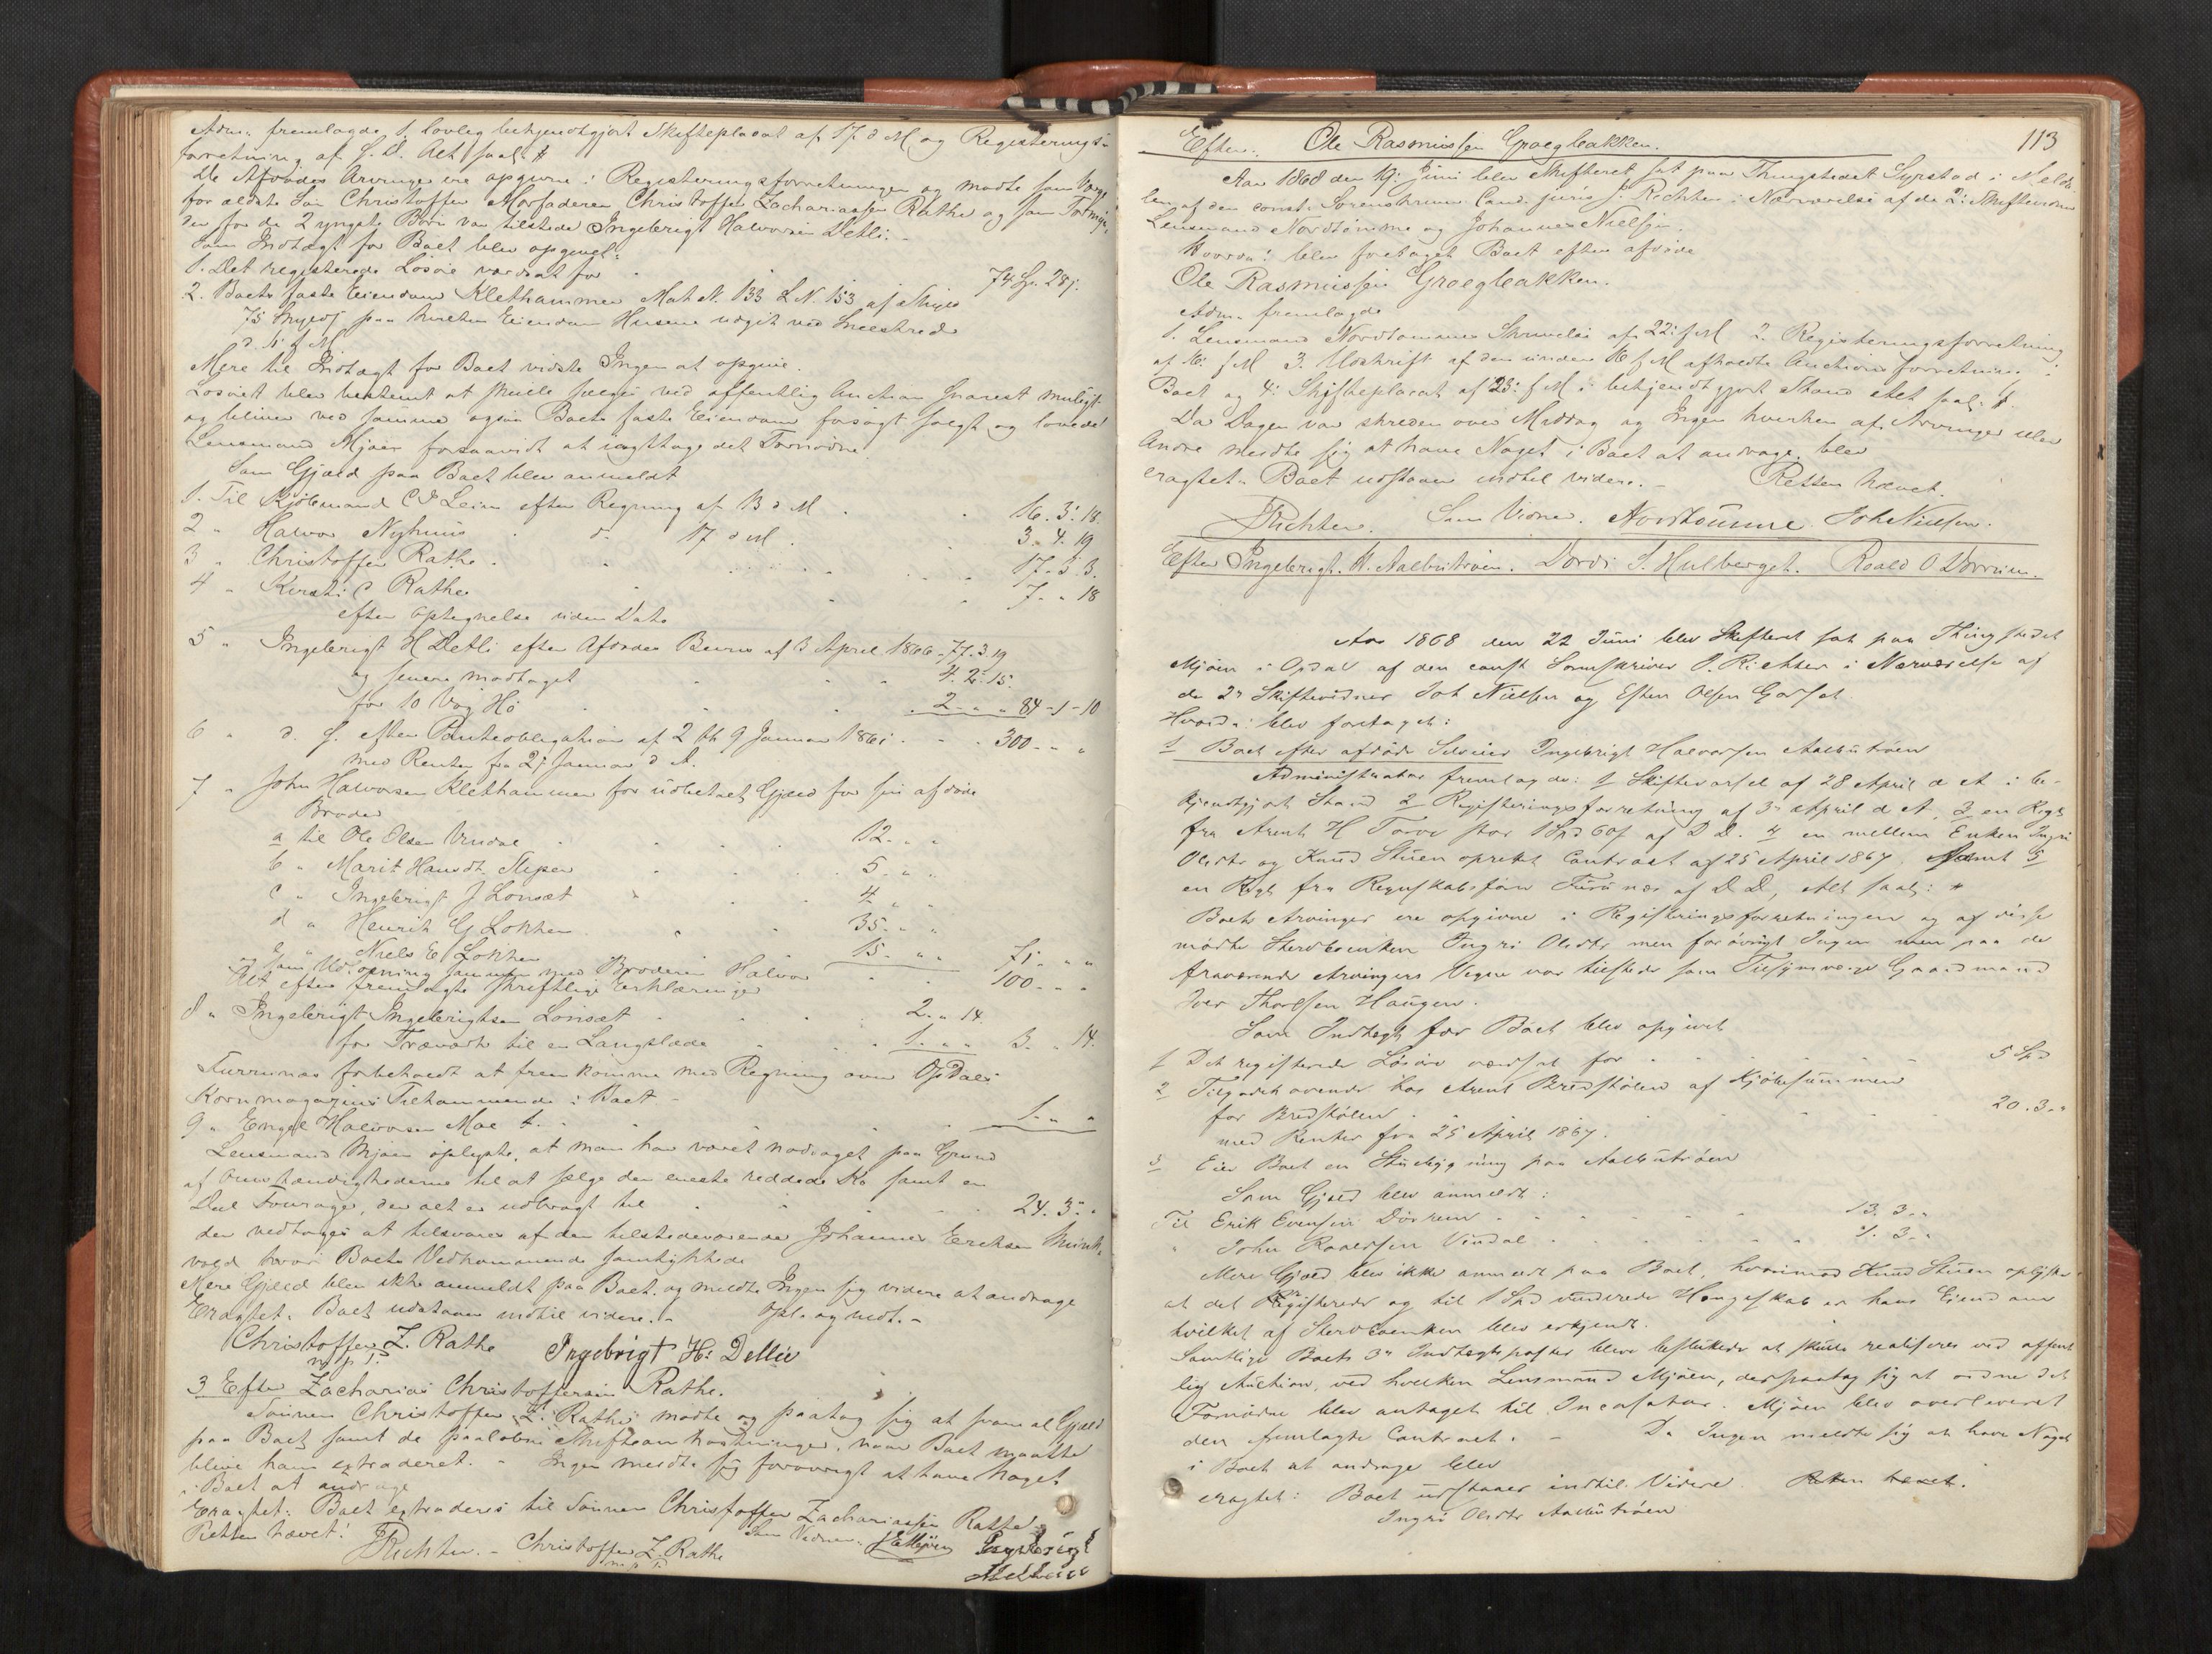 Adm. fremlagde 1. lovlig bekjendtgjort Skifteplacat af 17 d M og Registerings-
forretning af s. D. Alt saal. #
De Afdødes Arvinger ere opgivne i Registeringsforretningen og mødte som Værge
for ældste Søn Christoffer Morfaderen Christoffer Zachariassen Rathe og som Formyn-
der for de 2 yngste Børn var tilstede Ingebrigt Halvorsen Detli. -
Som Indtægt for Boet blev opgivet:
1. Det registerede Løsøre værdsat for 74 Sp. 28 s.
2. Boets faste Eiendom Klethammer Mat N. 133 L N. 153 af Skyld
paa hvilken Eiendom Husene
d. M
Mere til Indtægt for Boet vidste Ingen at opgive.
Løsøret blev bestemt at skulle sælges ved offentlig Auction snarest muligt
og bliver ved samme ogsaa Boets faste Eiendom forsøgt solgt og lovede
Lensmand Mjøen forsaavidt at iagttage det Fornødne.
Som Gjæld paa Boet blev anmeldt
1. Til Kjøbmand C Leim efter Regning af 13 d M . 16. 3. 18.
2 " Halvor Nyhuus d. 17 d M . 3. 4. 19
3 " Christoffer Rathe . 17. 3. 3.
4 " Kirsti C Rathe 7. " 18
efter Optegnelse uden Dato
5 " Ingebrigt H Detli efter Afdødes Beviis af 3 April 1866 - 77. 3 19
og senere modtaget 4. 2. 15.
for 10 Vog Hø . 2 - " " 84 - 1 - 10
6 " d. s. efter Panteobligation af 2 th 9 Januar 1861 . 300 - - "
med Renter fra 2 Januar d A.
7 " John Halvorsen Klethammer for udbetalt Gjæld for sin afdøde
Broder
a til Ole Olsen Vindal 12 - " "
b " Marit Hansdt. 5 - " "
c " Ingebrigt J Lonsæt 4 " "
d " Henrik G Løkken 35 - " "
e " Niels E Løkken 15 - " " 71 - " "
og som Udløsning sammen med Broderen Halvor 100 - - "
Alt efter fremlagte skriftlige Erklæringer
8 " Ingebrigt Ingebrigtsen Lonsæt 2. " 14.
for til en Langslæde 1. " " 3. " 14.
Furrunæs forbeholdt at fremkomme med Regning over Opdals
Kornmagazins Tilkommende i Boet -
9 " Engel Halvorsen Moe t. 1. " "
Lensmand Mjøen oplyste, at man har været nødsaget paa Grund
af Omstændighederne til at sælge den eneste reddede Ko samt en
Deel Fourage, der alt er udbragt til 24. 3. "
der vedtages at tilsvares af den tilstedeværende Johannes Ericksen
vold hvori Boets Vedkommende samtykkede
Mere Gjæld blev ikke anmeldt paa Boet, og meldte Ingen sig videre at andrage
Eragtet. Boet udstaaer indtil videre. - Opl. og vedt. -
Christoffer Z. Rathe Ingebrigt H: Dellie
m. p. P.
3 Efter Zacharias Christoffersen Rathe.
Sønnen Christoffer Z. Rathe mødte og paatog sig at svare al Gjæld
paa Boet samt de paaløbne Skifteomkostninger, naar Boet maatte
blive ham extraderet. - Ingen meldte sig forøvrigt at have Noget
i Boet at andrage
Eragtet: Boet extraderes til Sønnen Christoffer Zachariassen Rathe.
Retten hævet! JRichter. - Christoffer Z. Rathe Som Vidner.
m. p. P.
113
Efter. Ole Rasmussen Groegbakken.
Aar 1868 den 19: Juni blev Skifteret sat paa Thingstedet Syrstad i Meld-
len af den const. Sorenskriver Cand. juris J. Richter i Nærværelse af de 2: Skiftevidner
Lensmand Nordtømme og Johannes Nielsen.
Hvorda! blev foretaget Boet efter afdøde
Ole Rasmussen Groegbakken.
Adm. fremlagde
1. Lensmand Nordtømmes Skrivelse af 22: f M 2. Registeringsforretning
af 16: f M 3. Udskrift af den under 16 f M afholdte Auctionsforretning i
Boet og 4: Skifteplacat af 23: f M i bekjendtgjort Stand Alt saal: #.
Da Dagen var skreden over Middag og Ingen hverken af Arvinger eller
Andre meldte sig at have Noget i Boet at andrage, blev
eragtet. Boet udstaaer indtil videre. - Retten hævet.
JRichter. Som Vidner. Nordtømme Joh Nielsen.
Efter Ingebrigt. H. Aalbutrøen. Dordi S. Hulberget. Roald O Dørrum.
Aar 1868 den 22 Juni blev Skifteret sat paa Thingstedet
Mjøen i Opdal af den const Sorenskriver J. Richter i Nærværelse af
de 2de Skiftevidner Joh Nielsen og Esten Olsen Gorset.
Hvorda: blev foretaget:
1 Boet efter afdøde Selveier Ingebrigt Halvorsen Aalbutrøen
Administrator fremlagde: 1 Skiftevarsel af 28 April d A i be-
kjendtgjort Stand 2 Registeringsforretning af 3de April d A, 3 en Regn
fra Arent H Torve stor 1 Spd 60 s af D D. 4 en mellem Enken Ingri
Olsdtr og Knud Stuen oprettet Contract af 25 April 1867. samt 5
en Regn fra Regnskabsfører Furunæs af D. D, Alt saal: #
Boets Arvinger ere opgivne i Registeringsforretningen og af disse
mødte Stervboenken Ingri Olsdtr men forøvrigt Ingen men paa de
fraværende Arvingers Vegne var tilstede som Tilsynsværge Gaardmand
Iver Thoresen Haugen.
Som Indtægt for Boet blev opgivet
1 Det registerede Løsøre værdsat for 5 Spd
2 Tilgodehavende hos Arent Bredskølen af Kjøbesummen
for Bredskølen 20. 3. "
med Renter fra 25 April 1867.
3 Eier Boet en Stuebygning paa Aalbutrøen
Som Gjæld blev anmeldt:
Til Erik Evensen Dørrem 13. 3. "
" John Roaldsen Vindal 1. 3. "
Mere Gjæld blev ikke anmeldt paa Boet, hvorimod Knud Stuen oplyste
at det Registerede og til 1 Spd vurderede Hengeskab er hans Eiendom
hvilket af Stervboenken blev erkjendt.
Samtlige Boets 3de Indtægtsposter bleve besluttede at skulle realiseres ved offent
lig Auction, ved hvilken Lensmand Mjøen, der paatog sig at ordne det
Fornødne blev antaget til Incassator. Mjøen blev overleveret
den fremlagte Contract. - Da Ingen meldte sig at have Noget
i Boet at andrage blev
eragtet: Boet udstaaer indtil Videre. Retten hævet.
Ingri Olsdtr Aalbutrøen